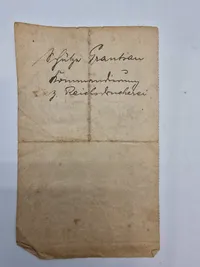 Schütze Grantzau
Kommandierung
z Reichsdruckerei